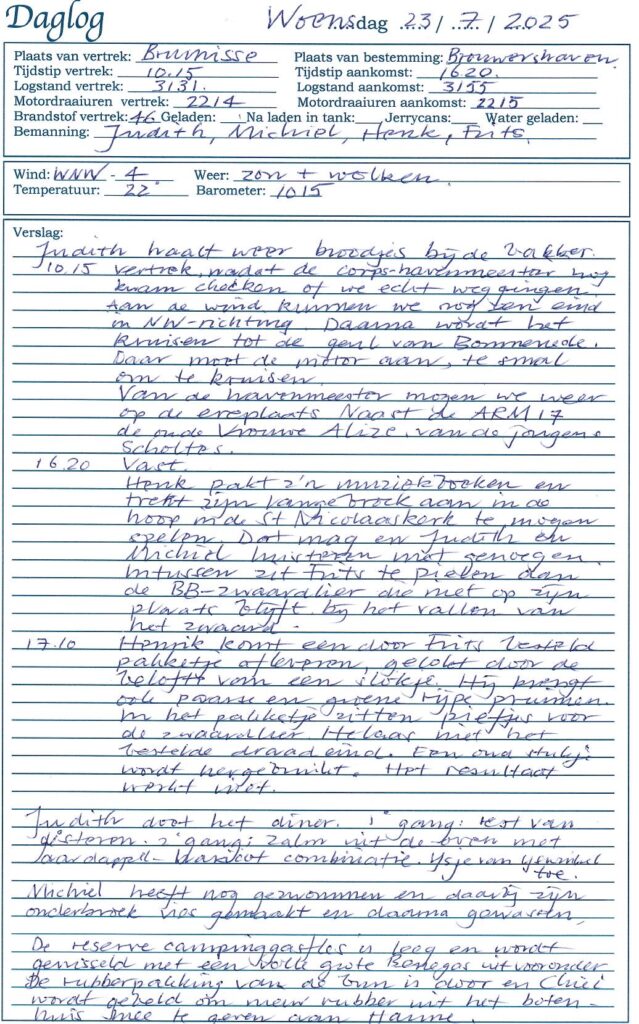 Daglog Woensdag 23/7/2025
Plaats van vertrek: Bruinisse Plaats van bestemming: Brouwershaven
Tijdstip vertrek: 10.15 Tijdstip aankomst: 16.20
Logstand vertrek: 3131. Logstand aankomst: 3155
Motordraaiuren vertrek: 2214 Motordraaiuren aankomst: 2215
Brandstof vertrek: 46 Geladen: Na laden in tank: Jerrycans: Water geladen:
Bemanning: Judith, Michiel, Henk, Frits.
Wind: WNW - 4 Weer: zon + wolken.
Temperatuur: 22° Barometer: 1015
Verslag:
Judith haalt weer broodjes bij de bakker.
10.15 vertrek, nadat de corps-havenmeester nog
kwam checken of we echt weggingen.
Aan de wind kunnen we nog een eind
in NW-richting. Daarna wordt het
kruisen tot de geul van Bommenede.
Daar moet de motor aan, te smal
om te kruisen.
Van de havenmeester mogen we weer
op de ereplaats Naast de ARM 17
de oude Vrouwe Alize, van de jongens
Scholtes.
16.20 Vast.
Henk pakt z'n muziekboeken en
trekt zijn lange broek aan in de
hoop in de St Nicolaaskerk te mogen
spelen. Dat mag en Judith en
Michiel luisteren met genoegen.
Intussen zit Frits te pielen aan
de BB-zwaardlier die niet op zijn
plaats blijft bij het vallen van
het zwaard.
17.10 Henrik komt een door Frits besteld
pakketje afleveren, gelokt door de
belofte van een slokje. Hij brengt
ook paarse en groene rijpe pruimen.
In het pakketje zitten pietjes voor
de zwaardlier. Helaas niet het
bestelde draadeind. Een oud stukje
wordt hergebruikt. Het resultaat
werkt niet.
Judith doet het diner. 1e gang: rest van
gisteren. 2e gang: zalm uit de oven met
aardappel- combinatie. IJsje van IJswinkel
toe.
Michiel heeft nog gezwommen en daarbij zijn
onderbroek vies gemaakt en daarna gewassen.
De reserve campinggasfles is leeg en wordt
gewisseld met een volle grote Benegas uit vooronder
De rubberpakking van de bun is door en
wordt gebeld om nieuw rubber uit het boten-
huis mee te geven aan Hanne.